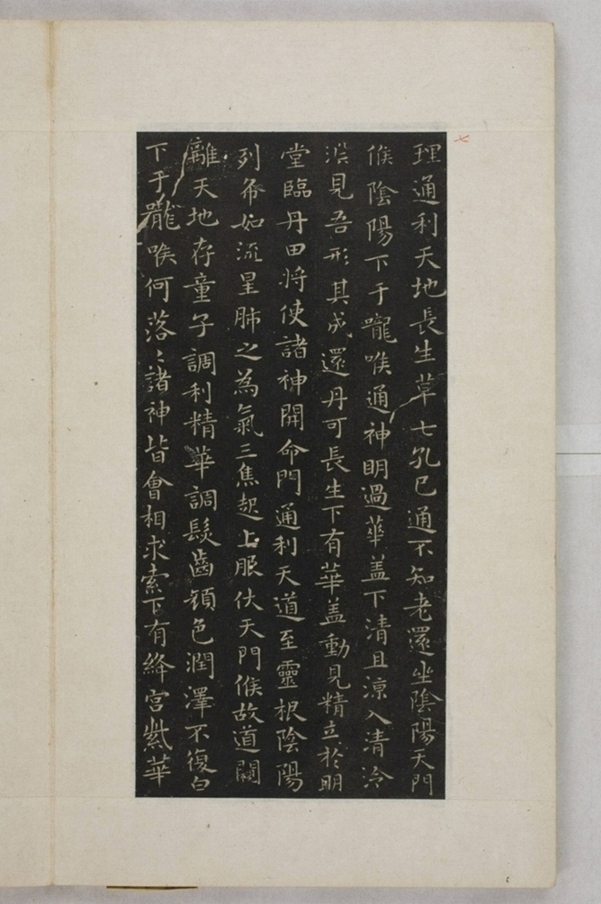 理通利天地長生草七孔已通不知老還坐陰陽天門
候陰陽下于嚨喉通神明過華蓋下清且涼入清冷
淵見吾形其成還丹可長生下有華蓋動見精立於明
堂臨丹田將使諸神開命門通利天道至靈根陰陽
列布如流星肺之為氣三焦起上服伏天門候故道闚
離天地存童子調利精華調髮齒顏色潤澤不復白
下于嚨喉何落〻諸神皆會相求索下有絳宮紫華